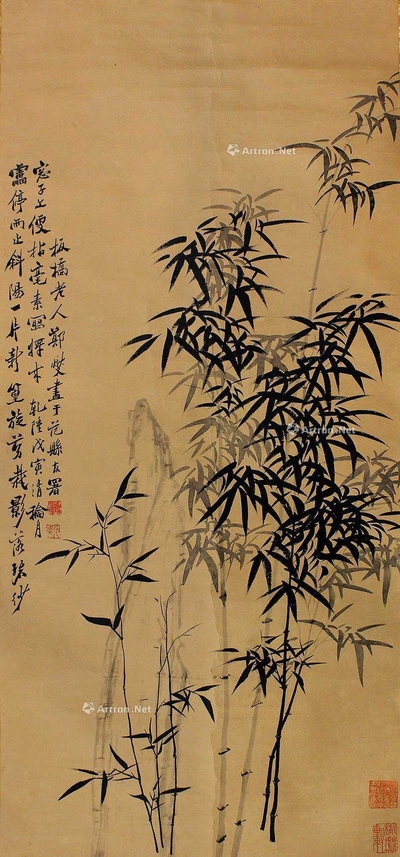 雷停雨止斜陽一片新篁旋剪裁影落碧紗
窓子上便拈毫素寫將來 乾隆戊寅清和月
板橋老人鄭燮畫于范縣官署
Artron.Net
Artron.Net
Artron.Net